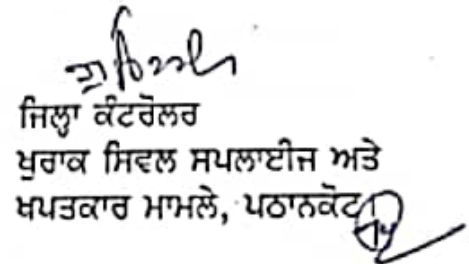 ਜਿਲ੍ਹਾ ਕੰਟਰੋਲਰ
ਖੁਰਾਕ ਸਿਵਲ ਸਪਲਾਈਜ ਅਤੇ
ਖਪਤਕਾਰ ਮਾਮਲੇ, ਪਠਾਨਕੋਟ